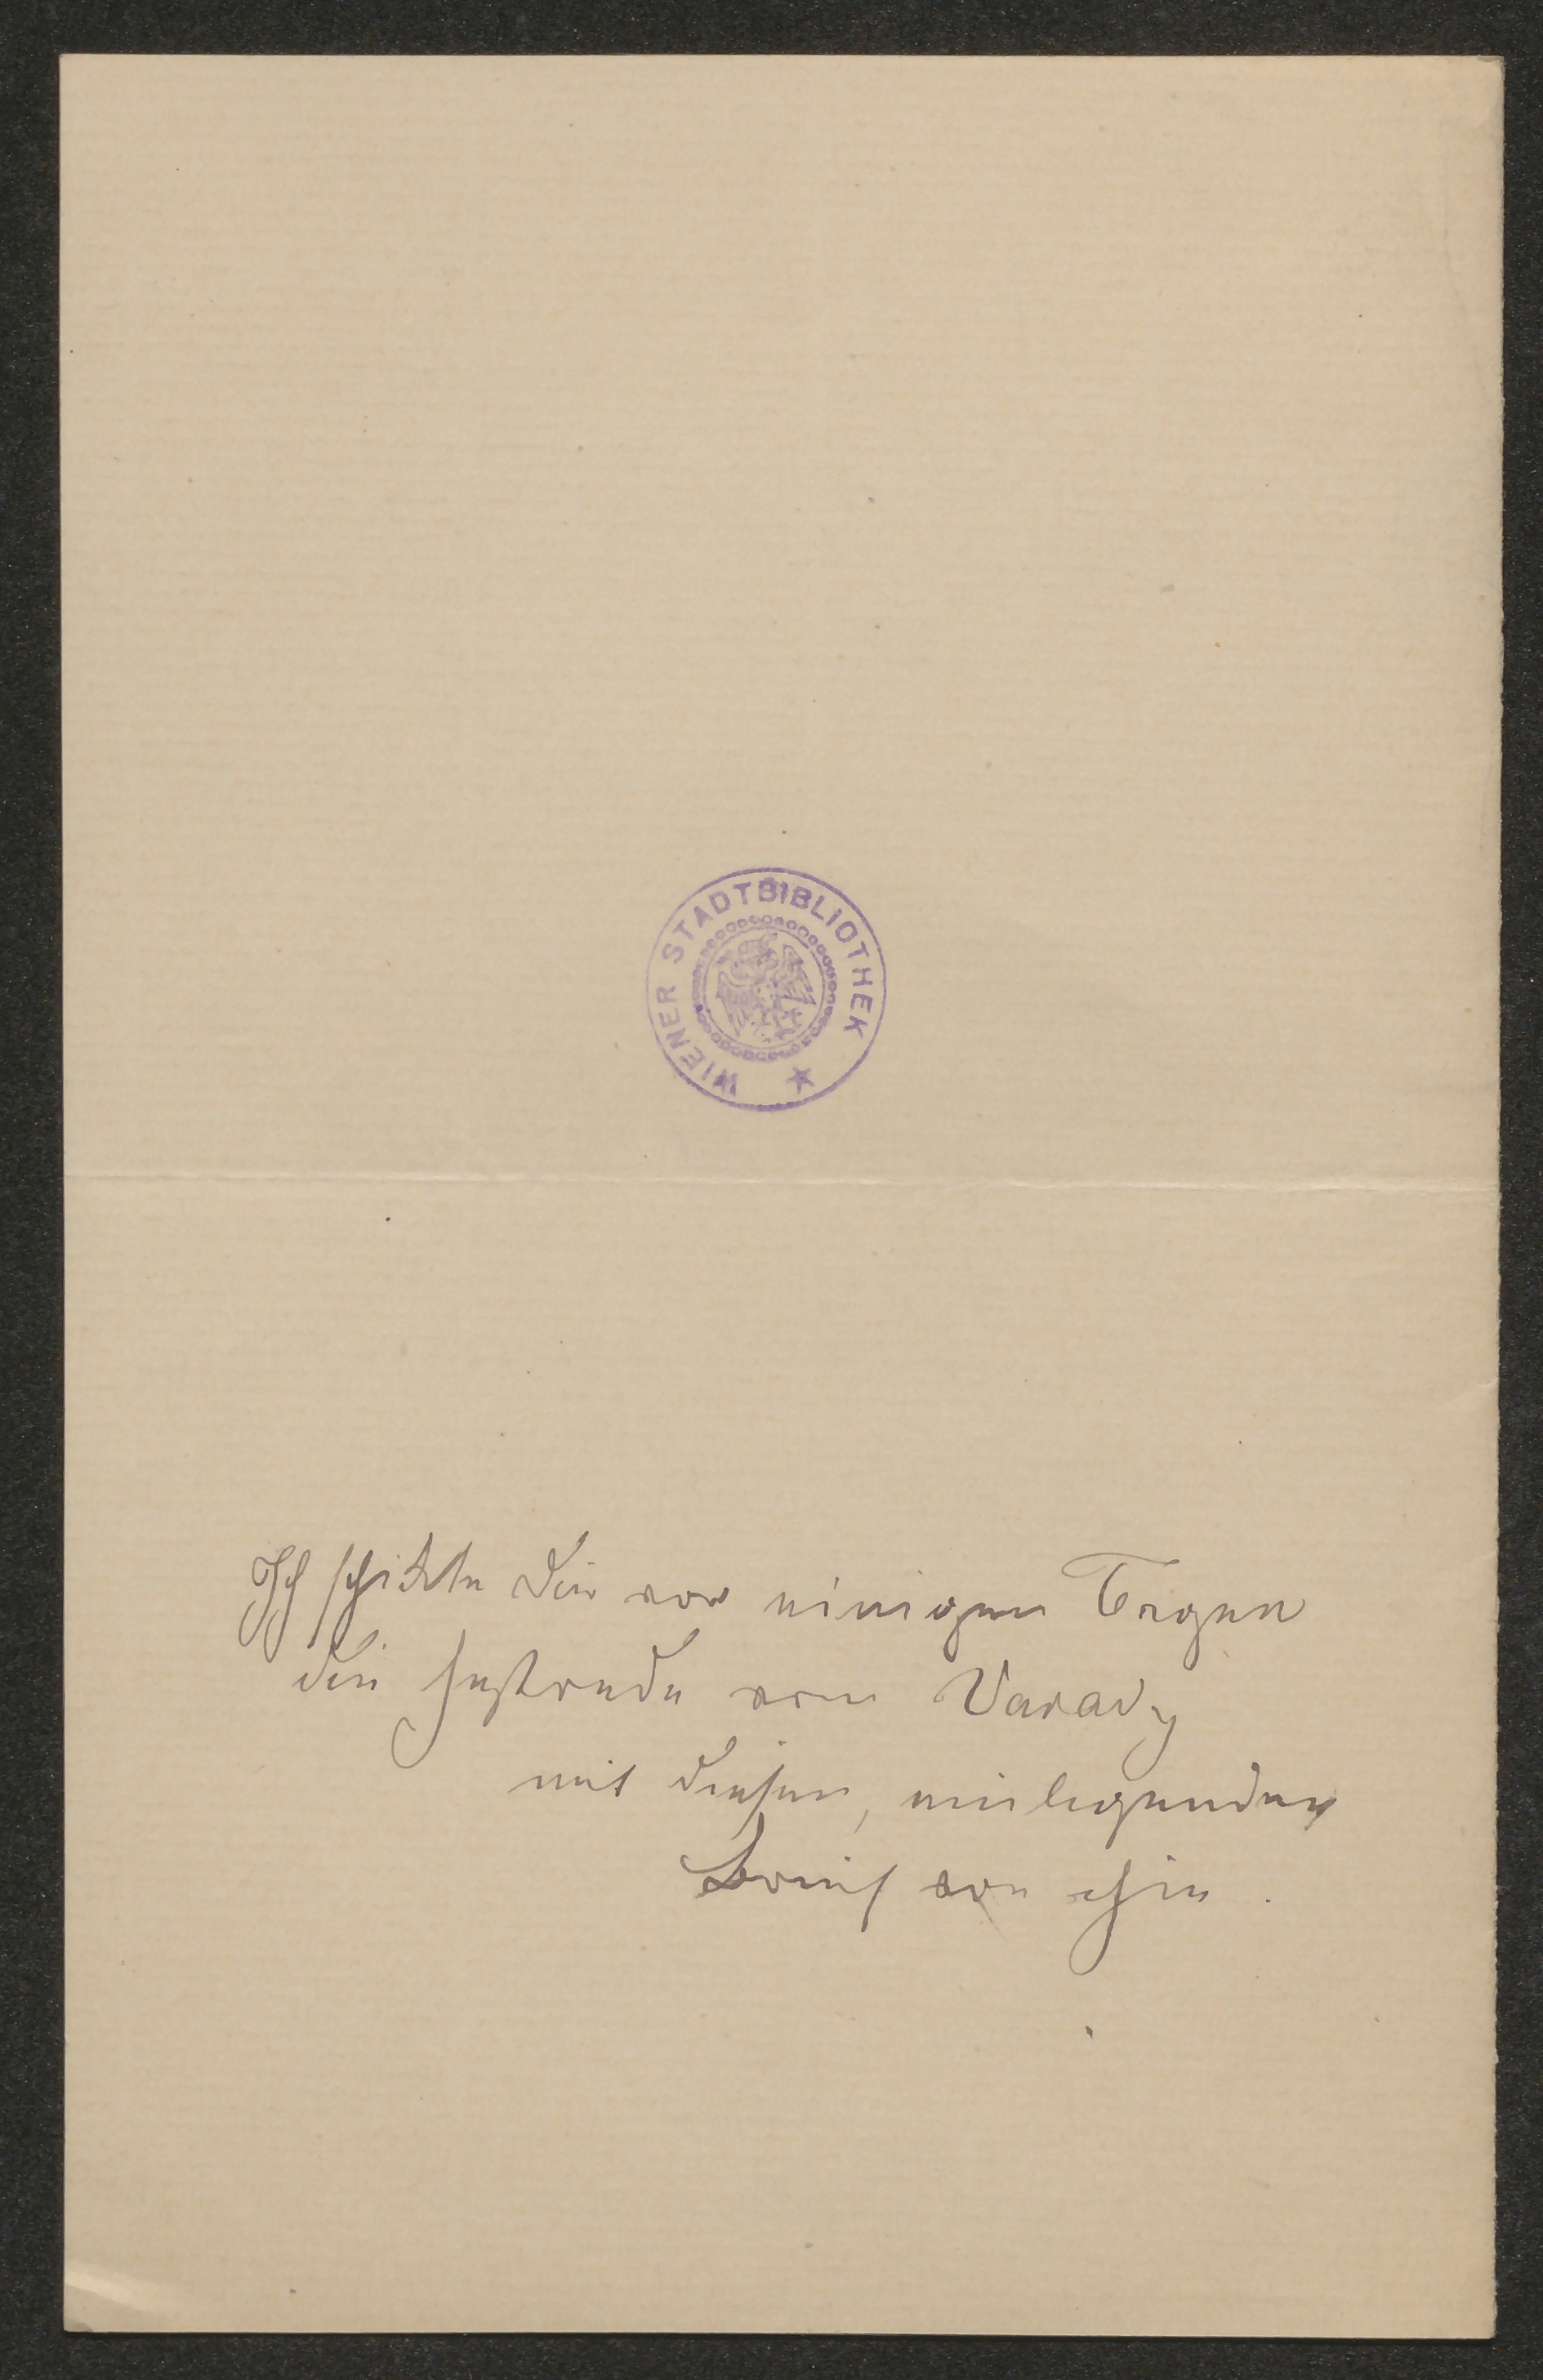 WIENER STADTBIBLIOTHEK
Ich schikte Dir vor einigen Tagen
die Festrede von Varady
mit diesem, einliegenden
Brief von ihm.